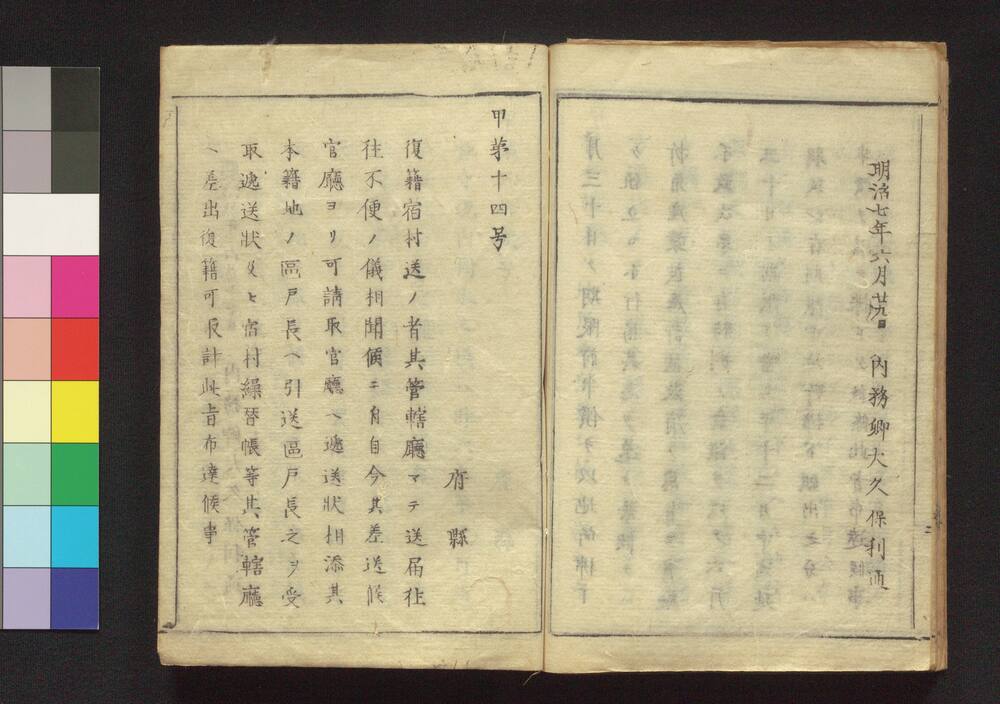 明治七年六月廿九日　内務卿大久保利通
甲第十四号
府縣
復籍宿村送ノ者其管轄廳マテ送届往
往不便ノ儀相聞候ニ付自今其差送候
官廳ヨリ可請取官廳ヘ逓送狀相添其
本籍地ノ區戸長ヘ引送區戸長之ヲ受
取逓送狀及ヒ宿村繰替帳等其管轄廳
ヘ差出復籍可取計此旨布達候事